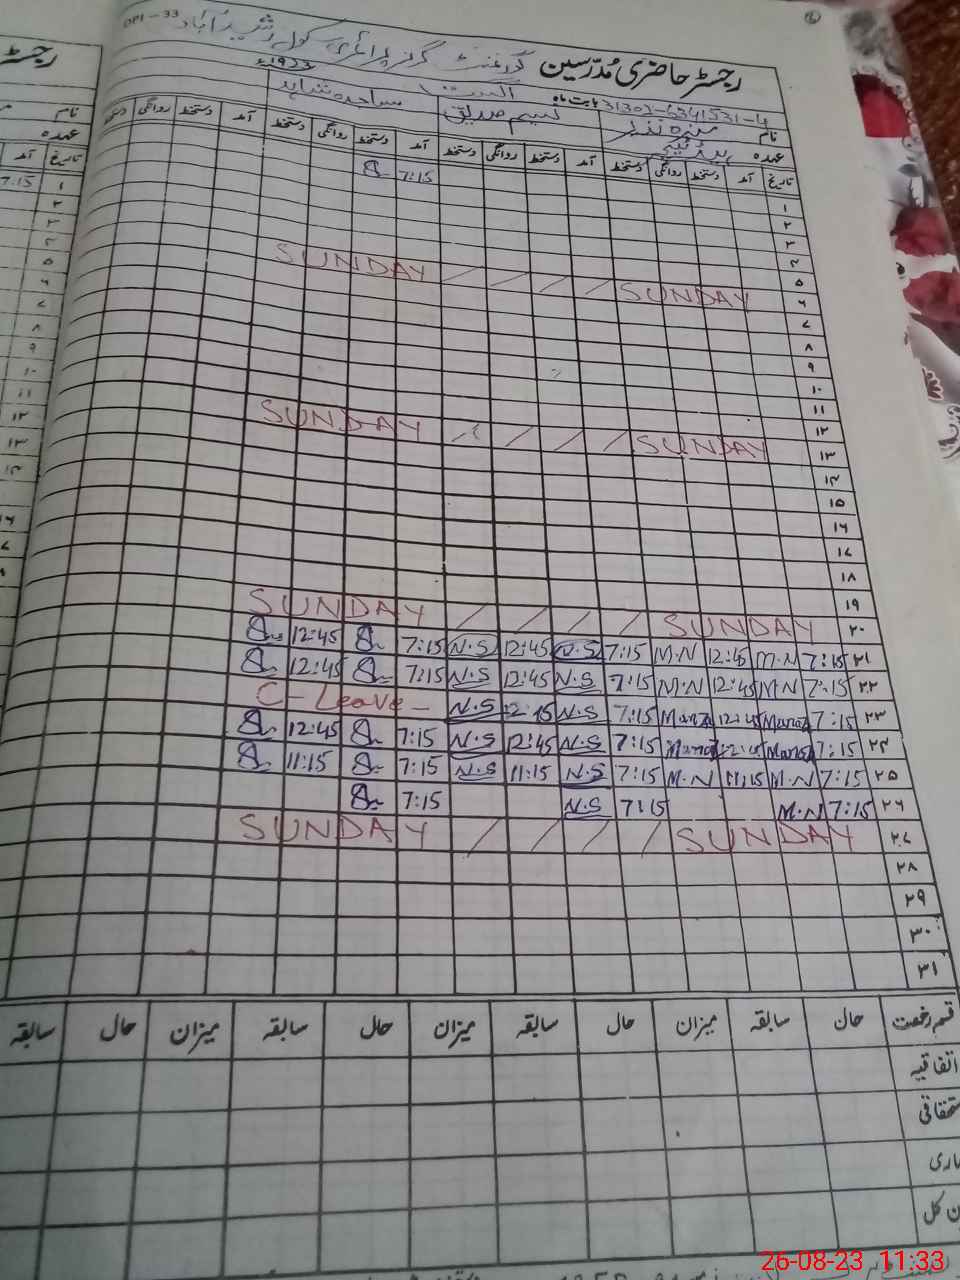 DPI - 33
رجسٹر حاضری مُدرّسین گورنمنٹ گرلز پرائمری سکول رشید آباد
بابت ماہ اگست
31303-6341531-4
نام منزہ نذیر نسیم صدیق ساجدہ شاہد
عہدہ ہیڈ ٹیچر
تاریخ آمد دستخط روانگی دستخط آمد دستخط روانگی دستخط آمد دستخط روانگی دستخط آمد روانگی دستخط
۱ 7:15
۲
۳
۴
۵
۶ SUNDAY / / / / SUNDAY
۷
۸
۹
۱۰
۱۱
۱۲
۱۳ SUNDAY / / / / SUNDAY
۱۴
۱۵
۱۶
۱۷
۱۸
۱۹
۲۰ SUNDAY / / / / SUNDAY
۲۱ 7:15 M.N 12:45 M.N 7:15 N.S 12:45 N.S 7:15 12:45
۲۲ 7:15 M.N 12:45 M.N 7:15 N.S 12:45 N.S 7:15 12:45
۲۳ 7:15 12:45 7:15 N.S 12:45 N.S C-Leave-
۲۴ 7:15 12:45 7:15 N.S 12:45 N.S 7:15 12:45
۲۵ 7:15 M.N 11:15 M.N 7:15 N.S 11:15 N.S 7:15 11:15
۲۶ 7:15 M.N 7:15 N.S 7:15
۲۷ SUNDAY / / / / SUNDAY
۲۸
۲۹
۳۰
۳۱
قسم رخصت حال سابقہ میزان حال سابقہ میزان حال سابقہ میزان حال سابقہ
اتفاقیہ
26-08-23 11:33
رجسٹر
نام
عہدہ
تاریخ آمد
۱ 7:15
۲
۳
۴
۵
۶
۷
۸
۹
۱۰
۱۱
۱۲
۱۳
۱۴